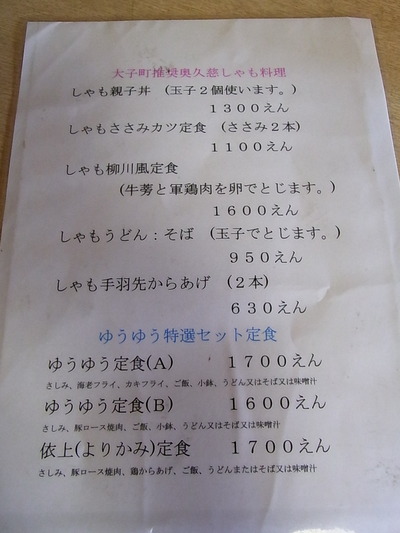 大子町推奨奥久慈しゃも料理
しゃも親子丼　(玉子２個使います。)
１３００えん
しゃもささみカツ定食　(ささみ２本)
１１００えん
しゃも柳川風定食
(牛蒡と軍鶏肉を卵でとじます。)
１６００えん
しゃもうどん：そば　(玉子でとじます。)
９５０えん
しゃも手羽先からあげ　(２本)
６３０えん
ゆうゆう特選セット定食
ゆうゆう定食(A)　１７００えん
さしみ、海老フライ、カキフライ、ご飯、小鉢、うどん又はそば又は味噌汁
ゆうゆう定食(B)　１６００えん
さしみ、豚ロース焼肉、ご飯、小鉢、うどん又はそば又は味噌汁
依上(よりかみ)定食　１７００えん
さしみ、豚ロース焼肉、鶏からあげ、ご飯、うどんまたはそば又は味噌汁